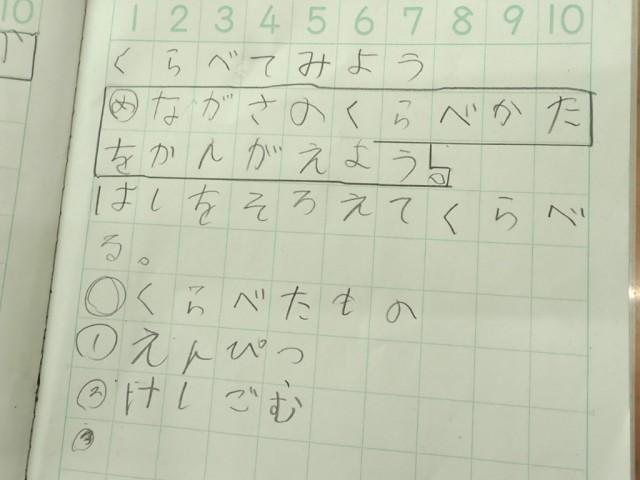 10
1 2 3 4 5 6 7 8 9 10
くらべてみよう
めながさのくらべかた
をかんがえよう。
はしをそろえてくらべ
る。
○くらべたもの
①えんぴつ
②けしごむ
③